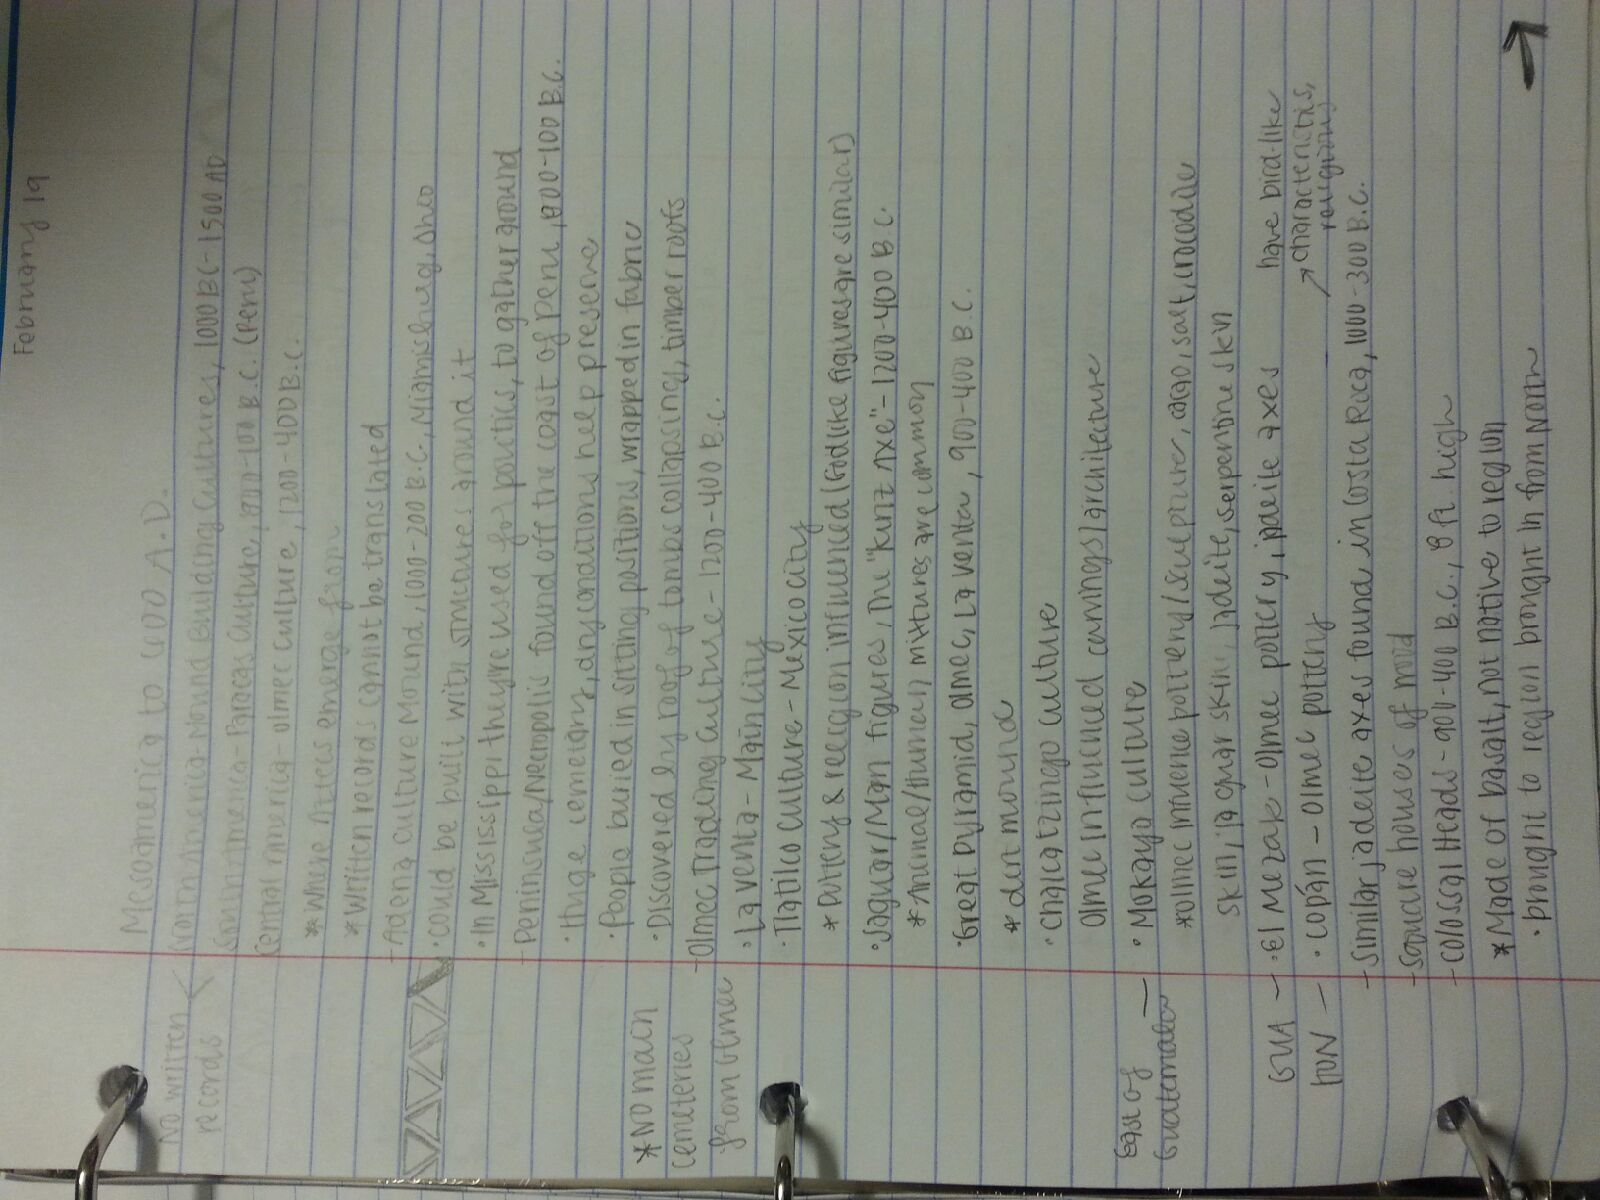 February 19
Mesoamerica to 400 A.D.
No written records
North America - Mound Building Cultures, 1000 BC - 1500 AD
South America - Paracas Culture, 900-100 B.C. (Peru)
Central America - Olmec Culture, 1200-400 B.C.
* Where Aztecs emerge from
* Written records cannot be translated
- Adena Culture Mound, 1000-200 B.C., Miamisburg, Ohio
· could be built with structures around it
· In Mississippi they're used for politics, to gather around
- Peninsula/Necropolis found off the coast of Peru, 900-100 B.C.
· Huge cemetary, dry conditions help preserve
· People buried in sitting positions, wrapped in fabric
· Discovered by roof of tombs collapsing, timber roofs
* No main cemeteries from Olmec
- Olmec Trading Culture - 1200-400 B.C.
· La Venta - Main city
· Tlatilco Culture - Mexico city
* Pottery & religion influenced (Godlike figures are similar)
· Jaguar/Man figures, The "Kunz Axe" - 1200-400 B.C.
* Animal/Human mixtures are common
· Great Pyramid, Olmec, La Venta, 900-400 B.C.
* dirt mound
· Chalcatzingo culture
Olmec influenced carvings/architecture
East of Guatemala — · Mokaya culture
* Olmec influence pottery/sculpture, cacao, salt, crocodile
skin, jaguar skin, jadeite, serpentine skin
GUA — · El Mezak - Olmec pottery, jadeite axes
have bird-like characteristics, religions
HON — · Copán - Olmec pottery
- Similar jadeite axes found in Costa Rica, 1000-300 B.C.
- Square houses of mud
- Colossal Heads - 900-400 B.C., 8 ft. high
* Made of basalt, not native to region
· brought to region brought in from North